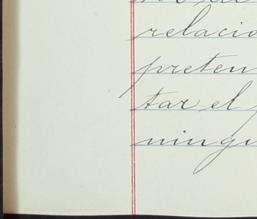 relacio
preten
tar el
ningu